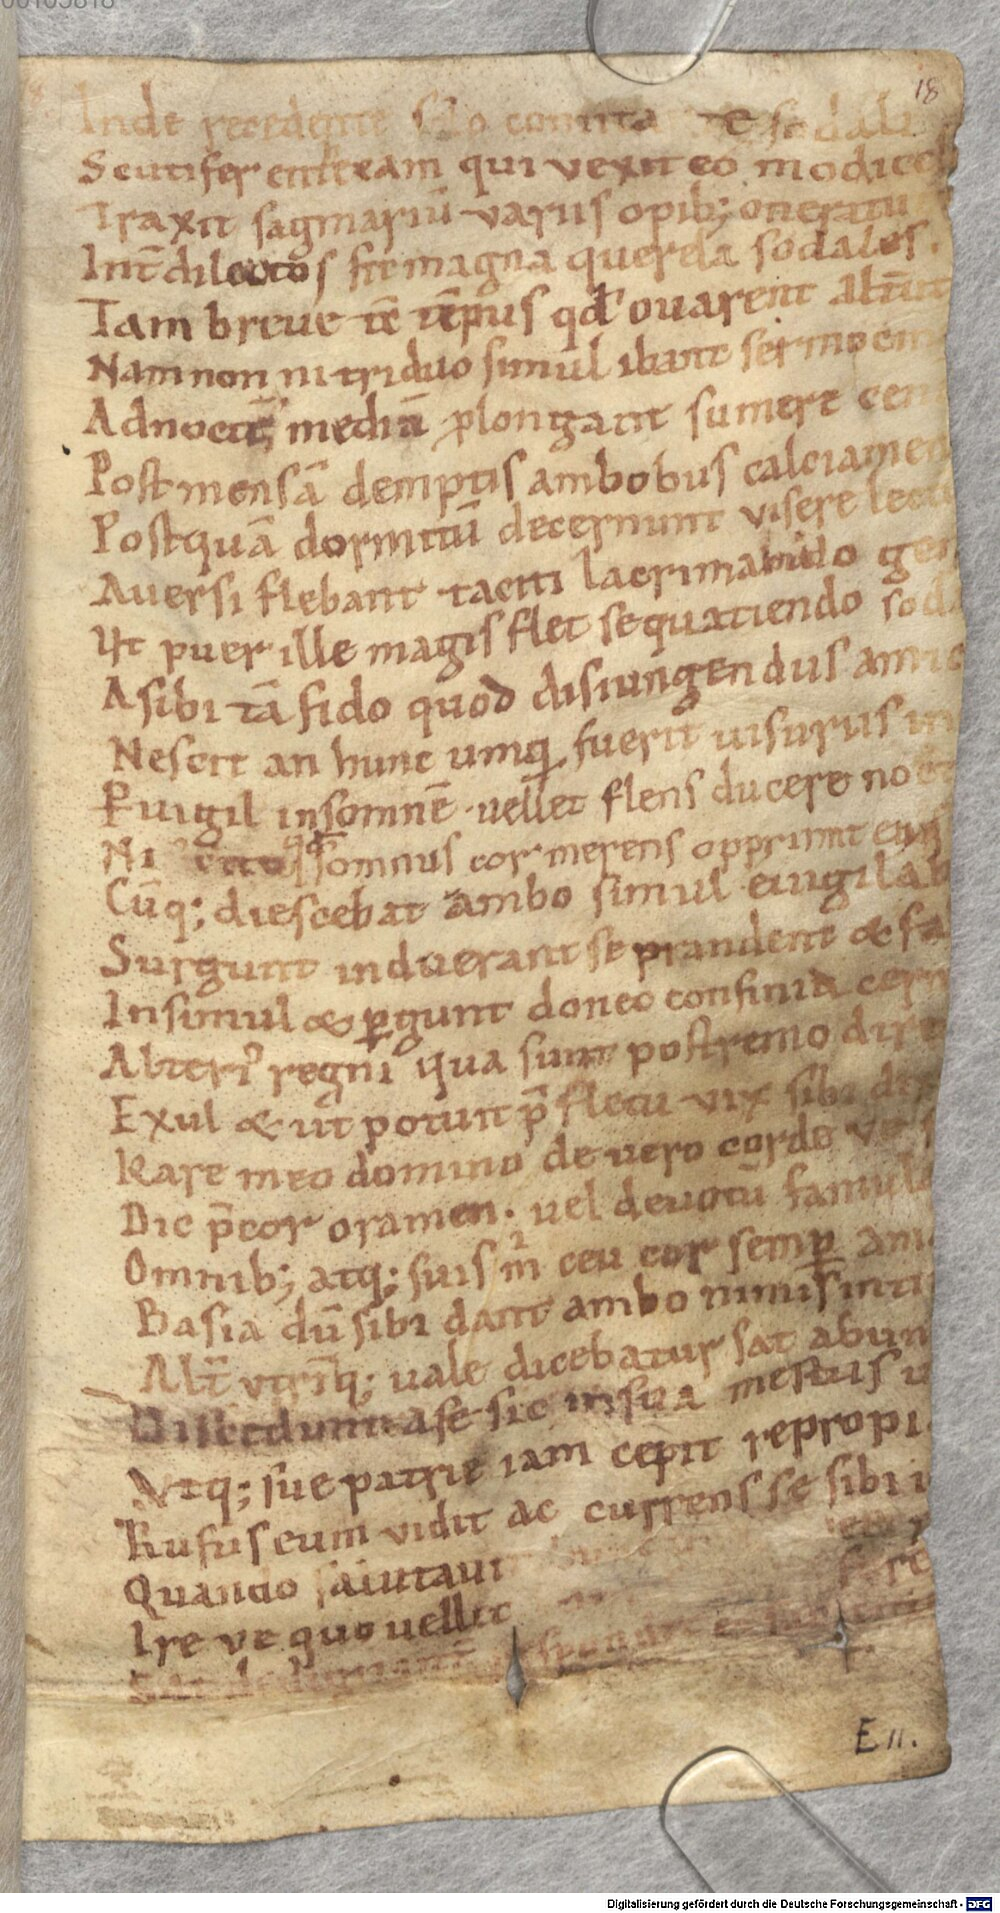 00105818
18
Inde recedente solo comita sodali
Scutifer enseam qui vexit eo modice
Traxit sagmariū variis opib; oneratu
Int̄ dilectos fit magna querela sodales.
Tam breve tc̄ tēpus qđ ovarent alt̄ut
Nam non ni triduo simul ibant sermocin
Ad noctē mediā ꝓlongant sumere cen
Post mensā demptis ambobus calciamen
Postquā dormitū decernunt visere lectu
Aversi flebant taciti lacrimando gen
Ut puer ille magis flet se quatiendo soda
A sibi tā fido quod disiungendus amic
Nescit an hunc umq̄ fuerit uisurus in
Puigil insomnē vellet flens ducere noct
Ni somnus cor merens opprimit eius
Cūq; diescebat ambo simul evigilab
Surgunt induerant se prandent & fa
Insimul & ꝑgunt donec confinia cern
Alteri' regni qua sunt postremo dire
Exul & ut potuit p̄ fletu vix sibi dix
Kare meo domino de vero corde ve
Dic p̄cor oramen. uel devotū famula
Omnib; atq; suis m̄ ceu cor semꝑ am
Basia dū sibi dant ambo nimis inti
Alt̄ utriq; uale dicebatur sat abun
Discedunt a se sic in sua mestus u
Utq; sue patrie iam cepit repropi
Rufus eum vidit ac currens se sibi i
Quando salutavit
Ire ve quo vellet fore
E II.
Digitalisierung gefördert durch die Deutsche Forschungsgemeinschaft - DFG